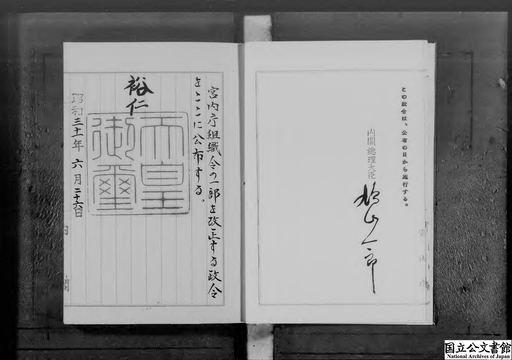 この政令は、公布の日から施行する。
内閣総理大臣
鳩山一郎
宮内庁組織令の一部を改正する政令
をここに公布する。
裕仁
天皇
御璽
昭和三十一年六月二十六日
内閣
国立公文書館
National Archives of Japan